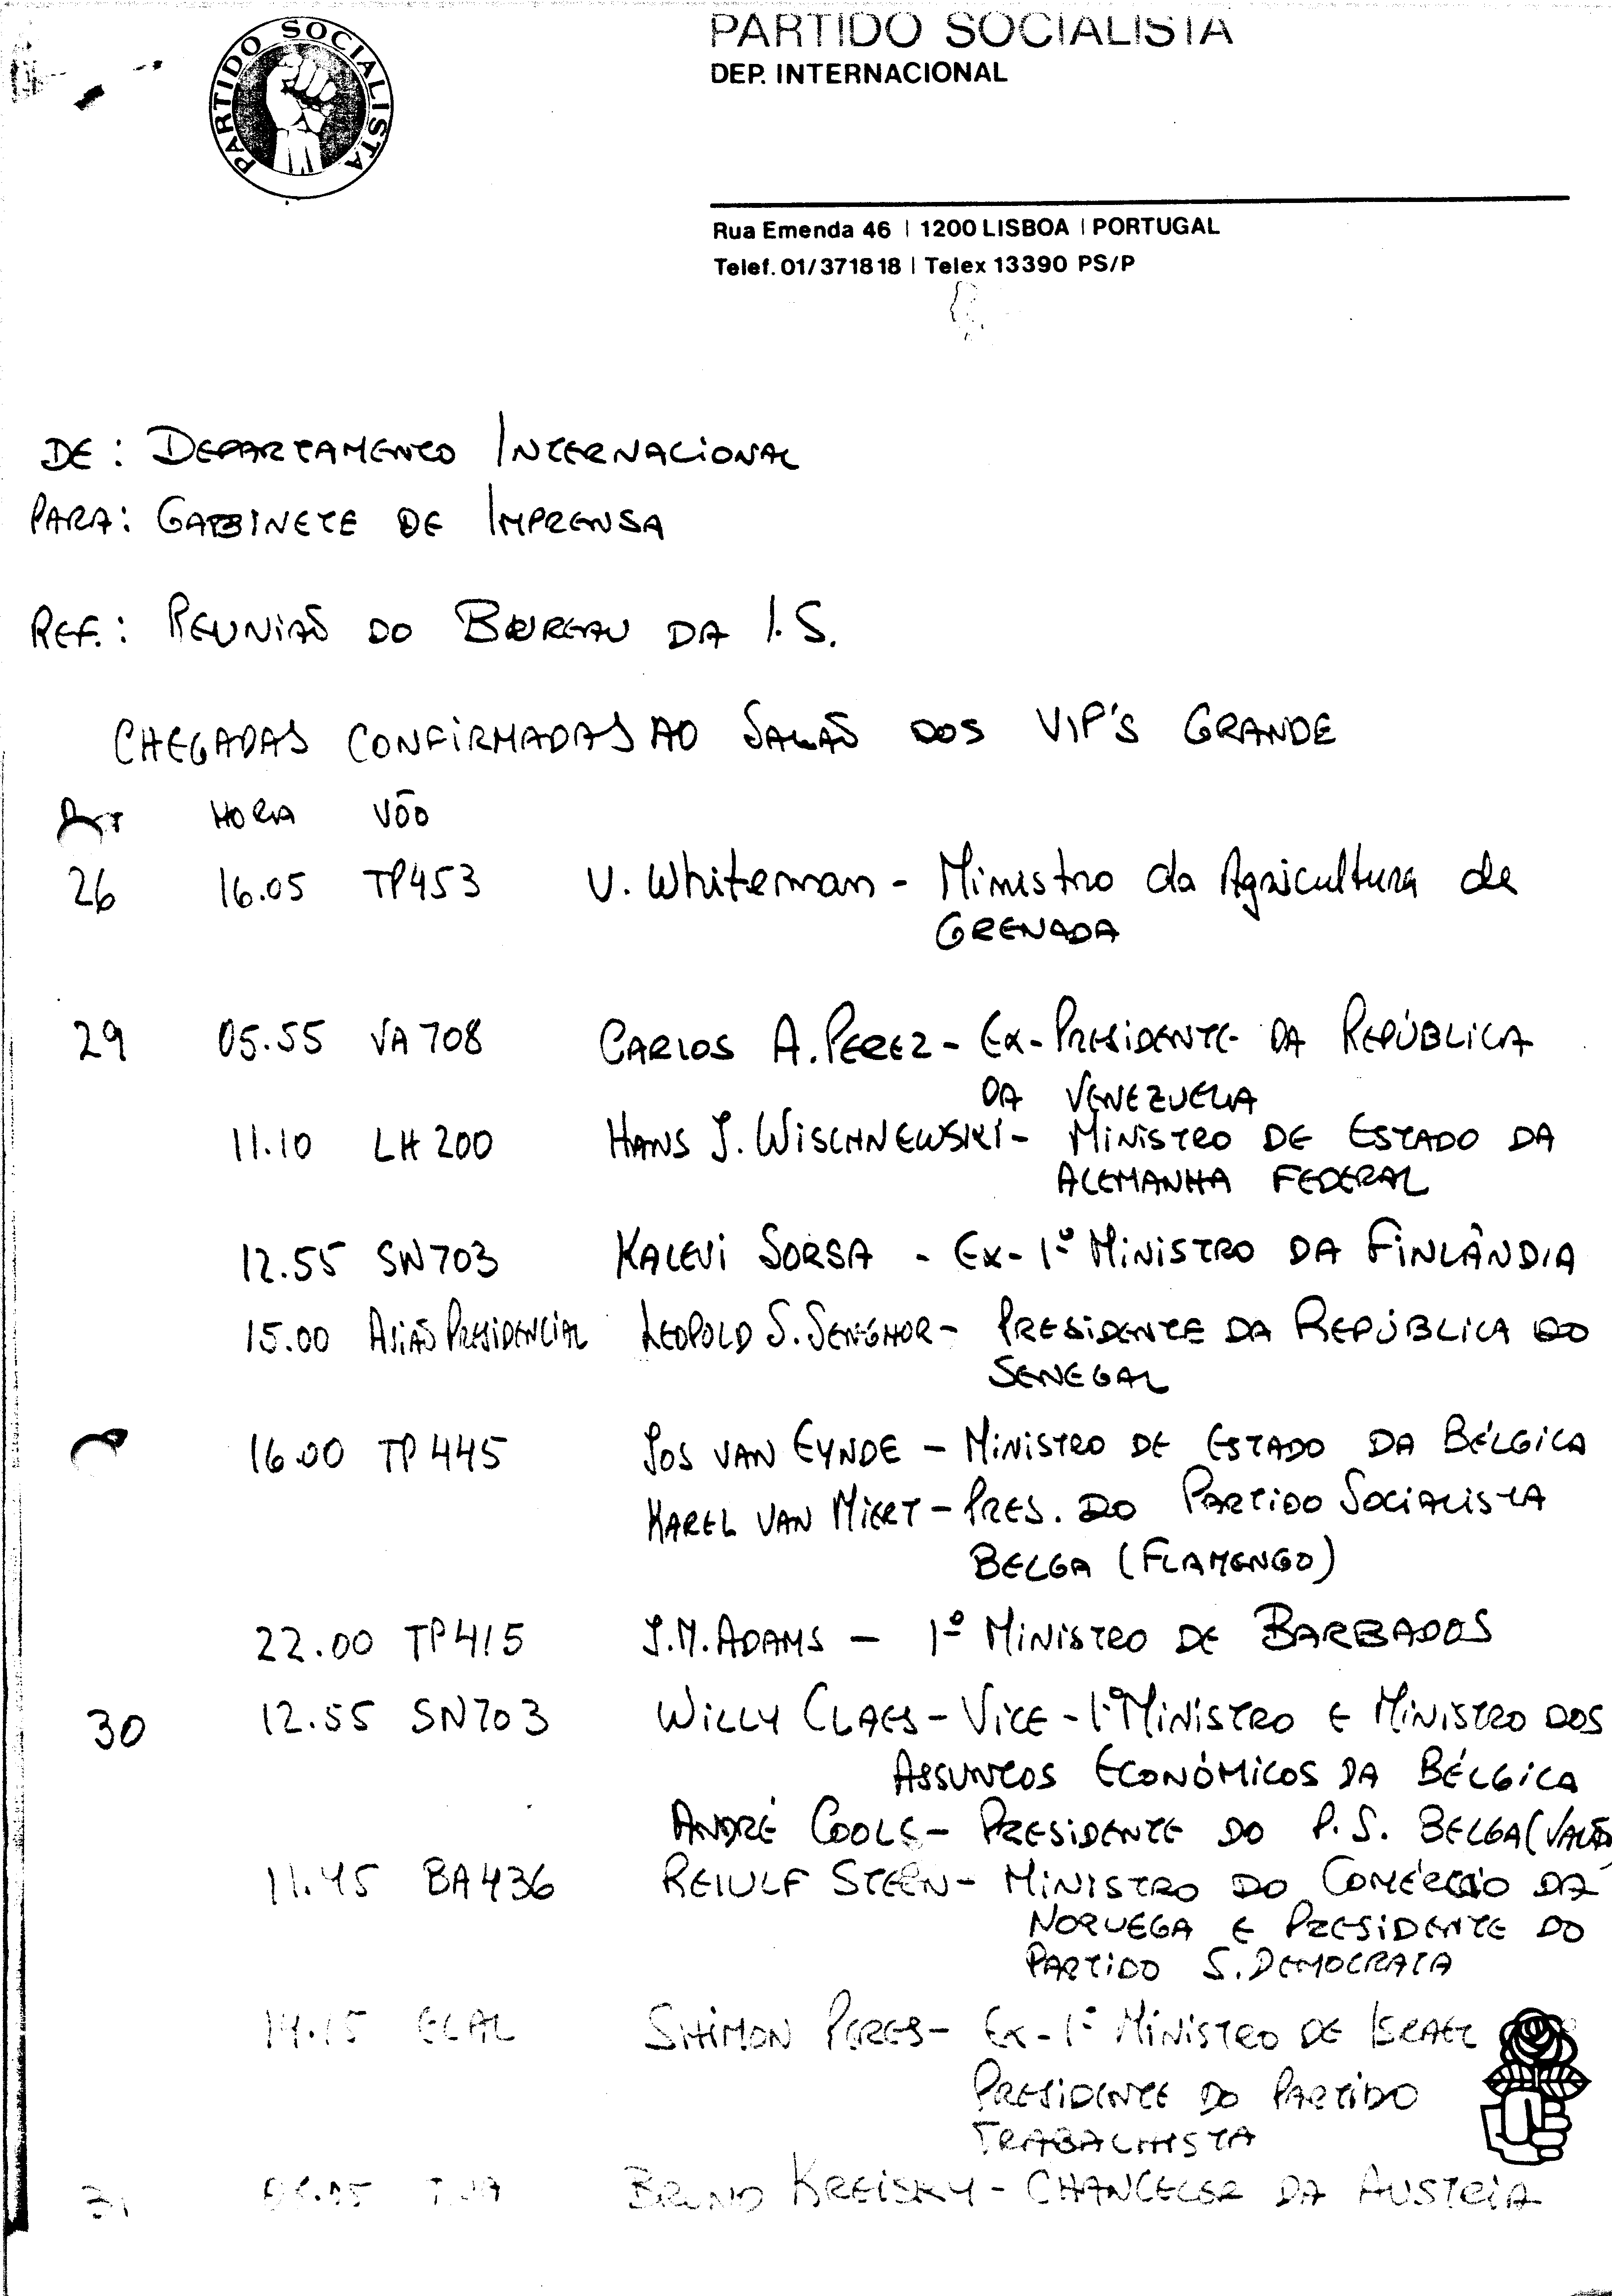 PARTIDO SOCIALISTA
PARTIDO SOCIALISTA
DEP. INTERNACIONAL
Rua Emenda 46 | 1200 LISBOA | PORTUGAL
Telef. 01/371818 | Telex 13390 PS/P
DE: DEPARTAMENTO INTERNACIONAL
PARA: GABINETE DE IMPRENSA
REF.: REUNIÃO DO BUREAU DA I.S.
CHEGADAS CONFIRMADAS AO SALÃO DOS VIP'S GRANDE
HORA VÕO
26 16.05 TP453 U. Whiteman - Ministro da Agricultura de
GRENADA
29 05.55 VA 708 CARLOS A. PEREZ - EX-PRESIDENTE DA REPÚBLICA
DA VENEZUELA
11.10 LH 200 HANS J. WISCHNEWSKI - MINISTRO DE ESTADO DA
ALEMANHA FEDERAL
12.55 SN703 KALEVI SORSA - EX-1º MINISTRO DA FINLÂNDIA
15.00 AVIÃO PRESIDENCIAL LEOPOLD S. SENGHOR - PRESIDENTE DA REPÚBLICA DO
SENEGAL
16.00 TP 445 JOS VAN EYNDE - MINISTRO DE ESTADO DA BÉLGICA
KAREL VAN MIERT - PRES. DO PARTIDO SOCIALISTA
BELGA (FLAMENGO)
22.00 TP415 J.M. ADAMS - 1º MINISTRO DE BARBADOS
30 12.55 SN703 WILLY CLAES - VICE-1º MINISTRO E MINISTRO DOS
ASSUNTOS ECONÓMICOS DA BÉLGICA
ANDRÉ COOLS - PRESIDENTE DO P.S. BELGA (VALÃO
11.45 BA436 REIULF STEEN - MINISTRO DO COMÉRCIO DA
NORUEGA E PRESIDENTE DO
PARTIDO S. DEMOCRATA
14.15 ELAL SHIMON PERES - EX-1º MINISTRO DE ISRAEL
PRESIDENTE DO PARTIDO
TRABALHISTA
31 BRUNO KREISKY - CHANCELER DA AUSTRIA